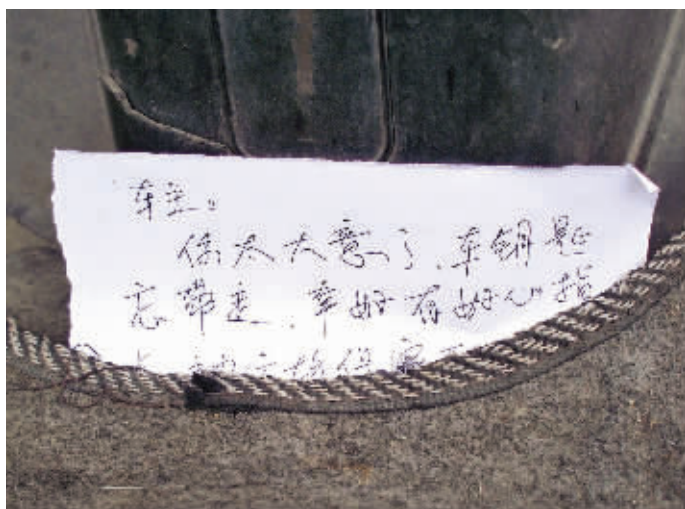 车主:
你太大意了,车钥匙
忘带走,幸好有好心指